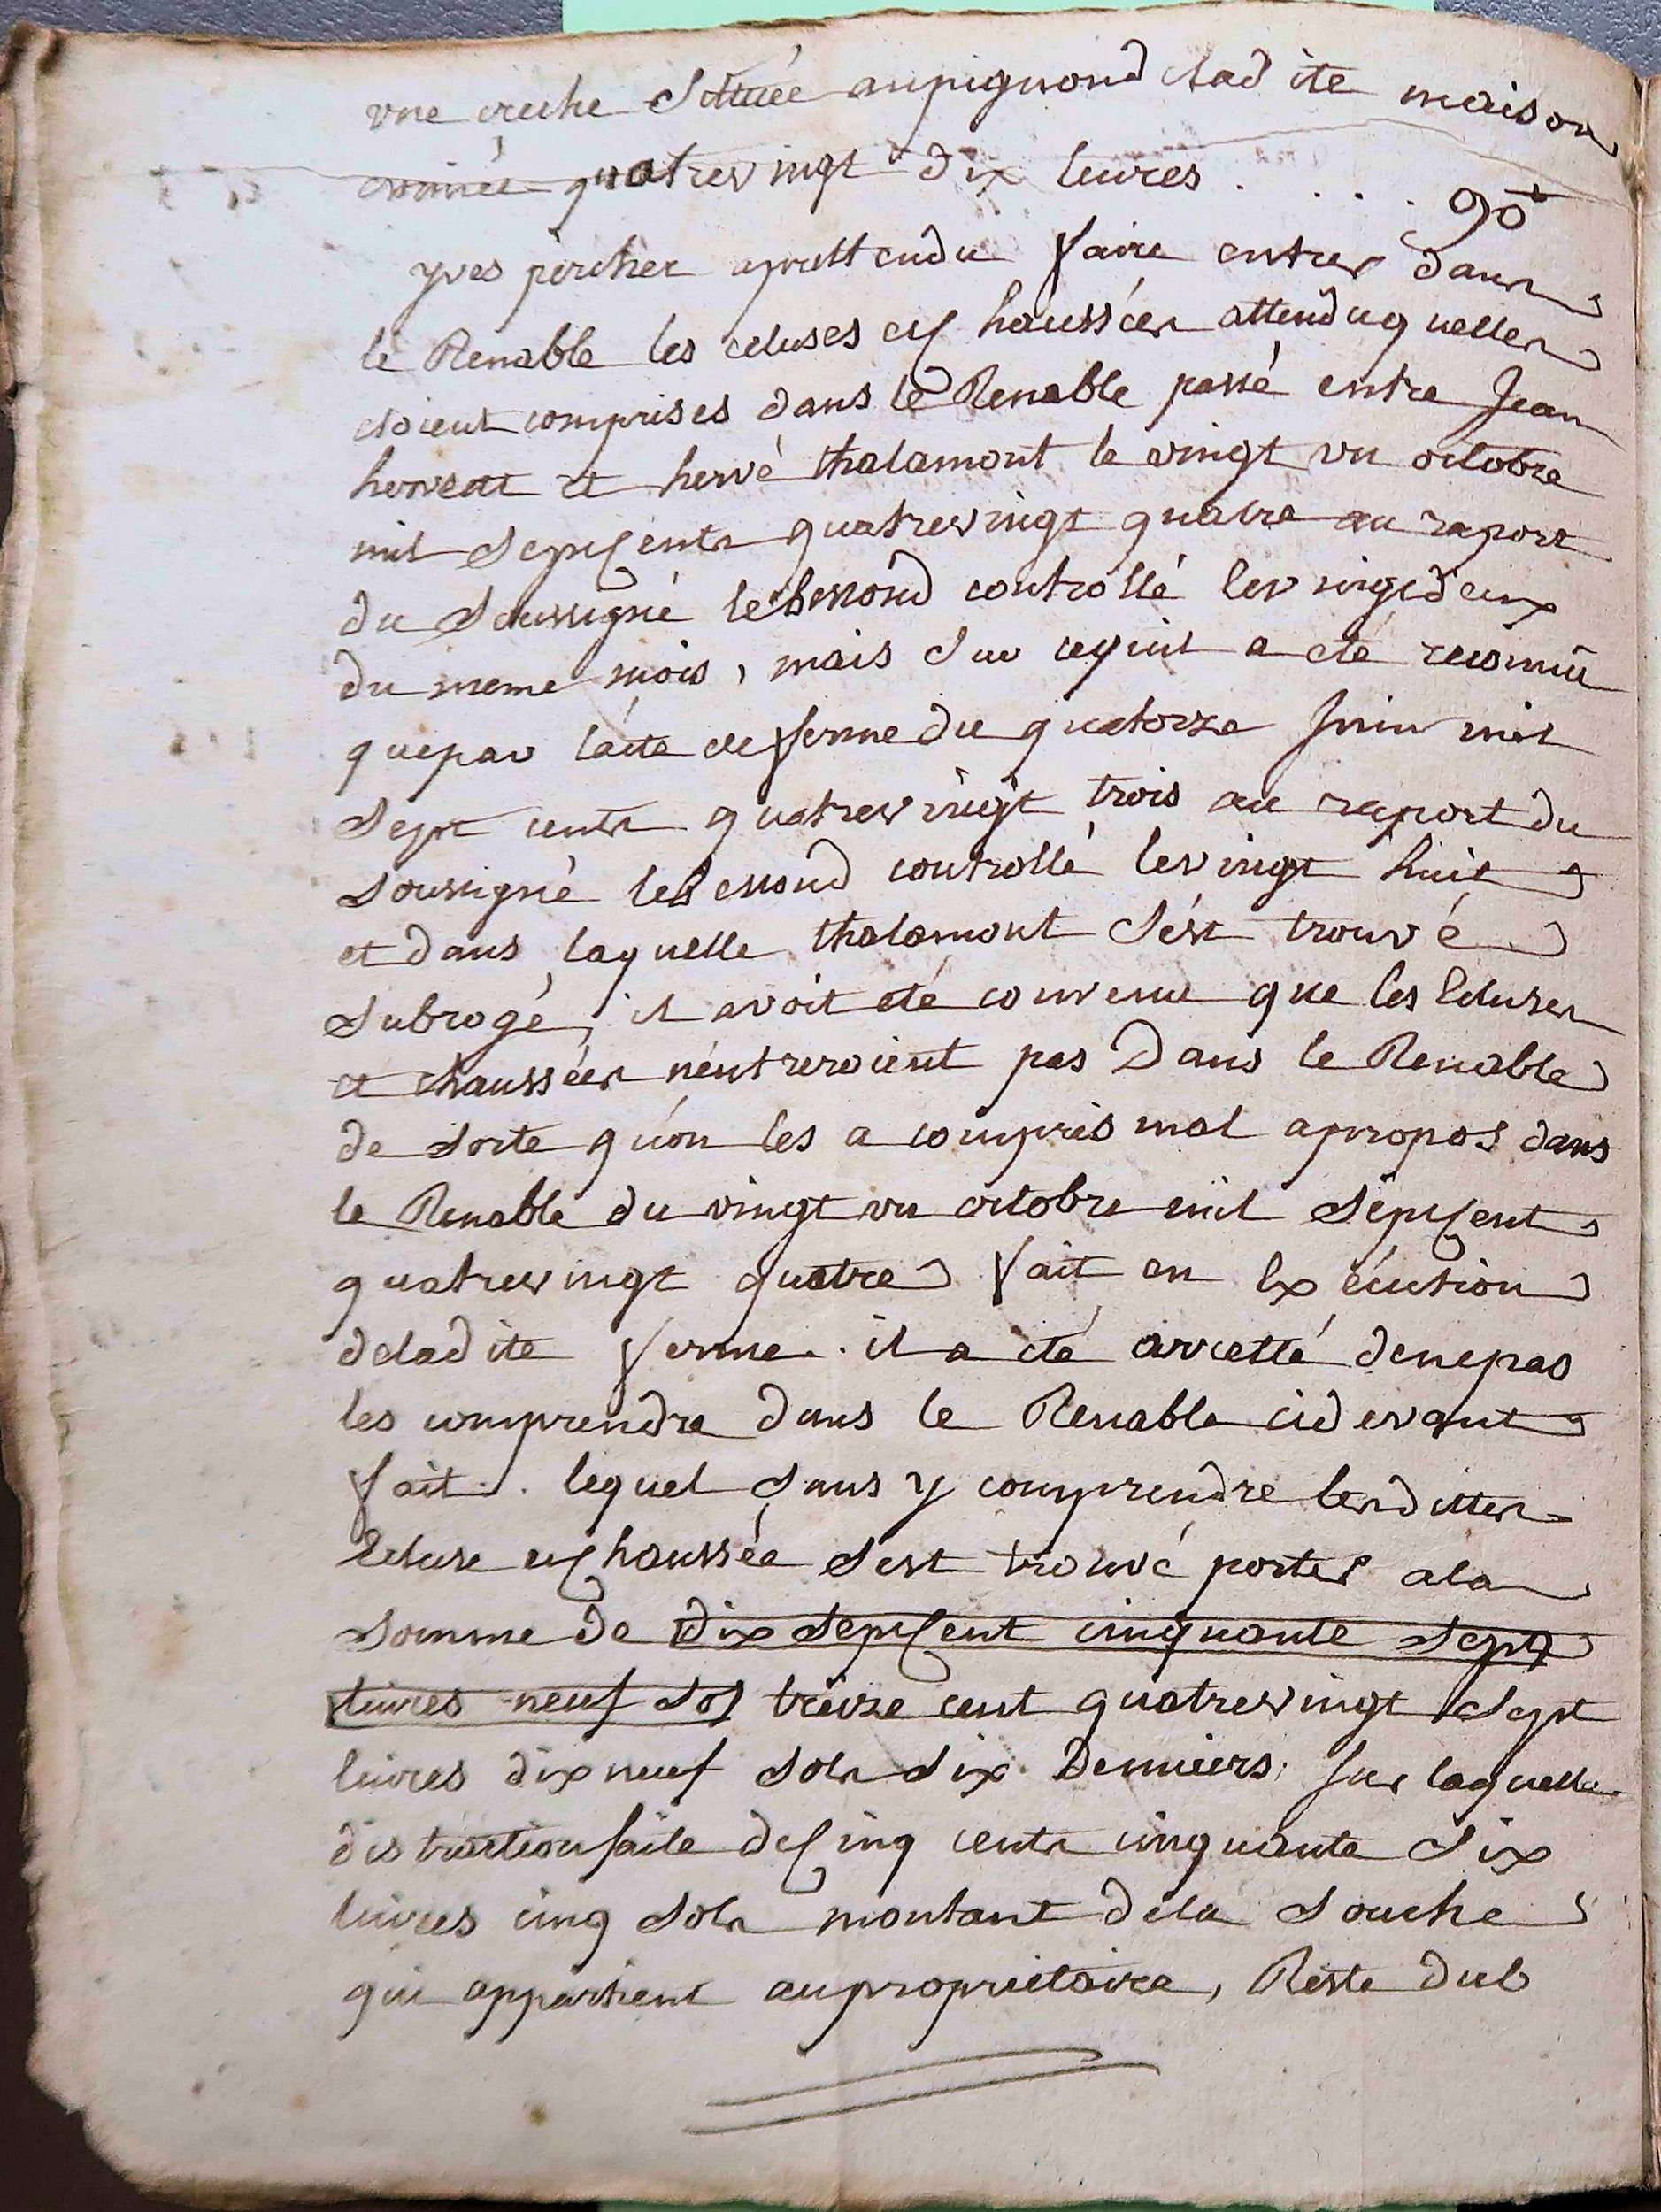 vne creche Situéé aupignond dladite maison
quatrevingt dix livres . . . . 90ᵗᵗ
yves percher aprettendu faire entrer dans
le Renable les ecluses etchaussées attenduquelles
etoient comprises dans le Renable passé entre Jean
et hervé thalamont le vingt vn octobre
mil Septcents quatrevingt quatre au raport
du Soussigné leBessond controllé levingtdeux
du meme mois, mais Sur cequil a eté reconnu
quepar lácte deferme du quatorze Juin mil
Sept cents quatrevingt trois au raport du
Soussigné leBessond controllé levingt huit
et dans laquelle thalamont S'ést trouvé
Subrogé, il avoit eté convenu que les Ecluses
et chaussées n'entreroient pas Dans le Renable
de Sorte qu'on les a compris mal apropos dans
le Renable du vingt vn octobre mil Septcent
quatrevingt quatre fait en Exécution
deladite ferme. il a eté arretté denepas
les comprendre dans le Renable cidevant
fait. lequel Sans y comprendre lesdittes
Ecluse etchaussée Sest trouvé porter ala
Somme de dix Septcent cinquante Sept
livres neuf Sols treize cent quatrevingt Sept
livres dixneuf Sols Six Denniers, sur laquelle
distractionfaite decinq cents cinquante Six
livres cinq Sols montant dela Souche
qui appartient aupropriétaire, Reste dub